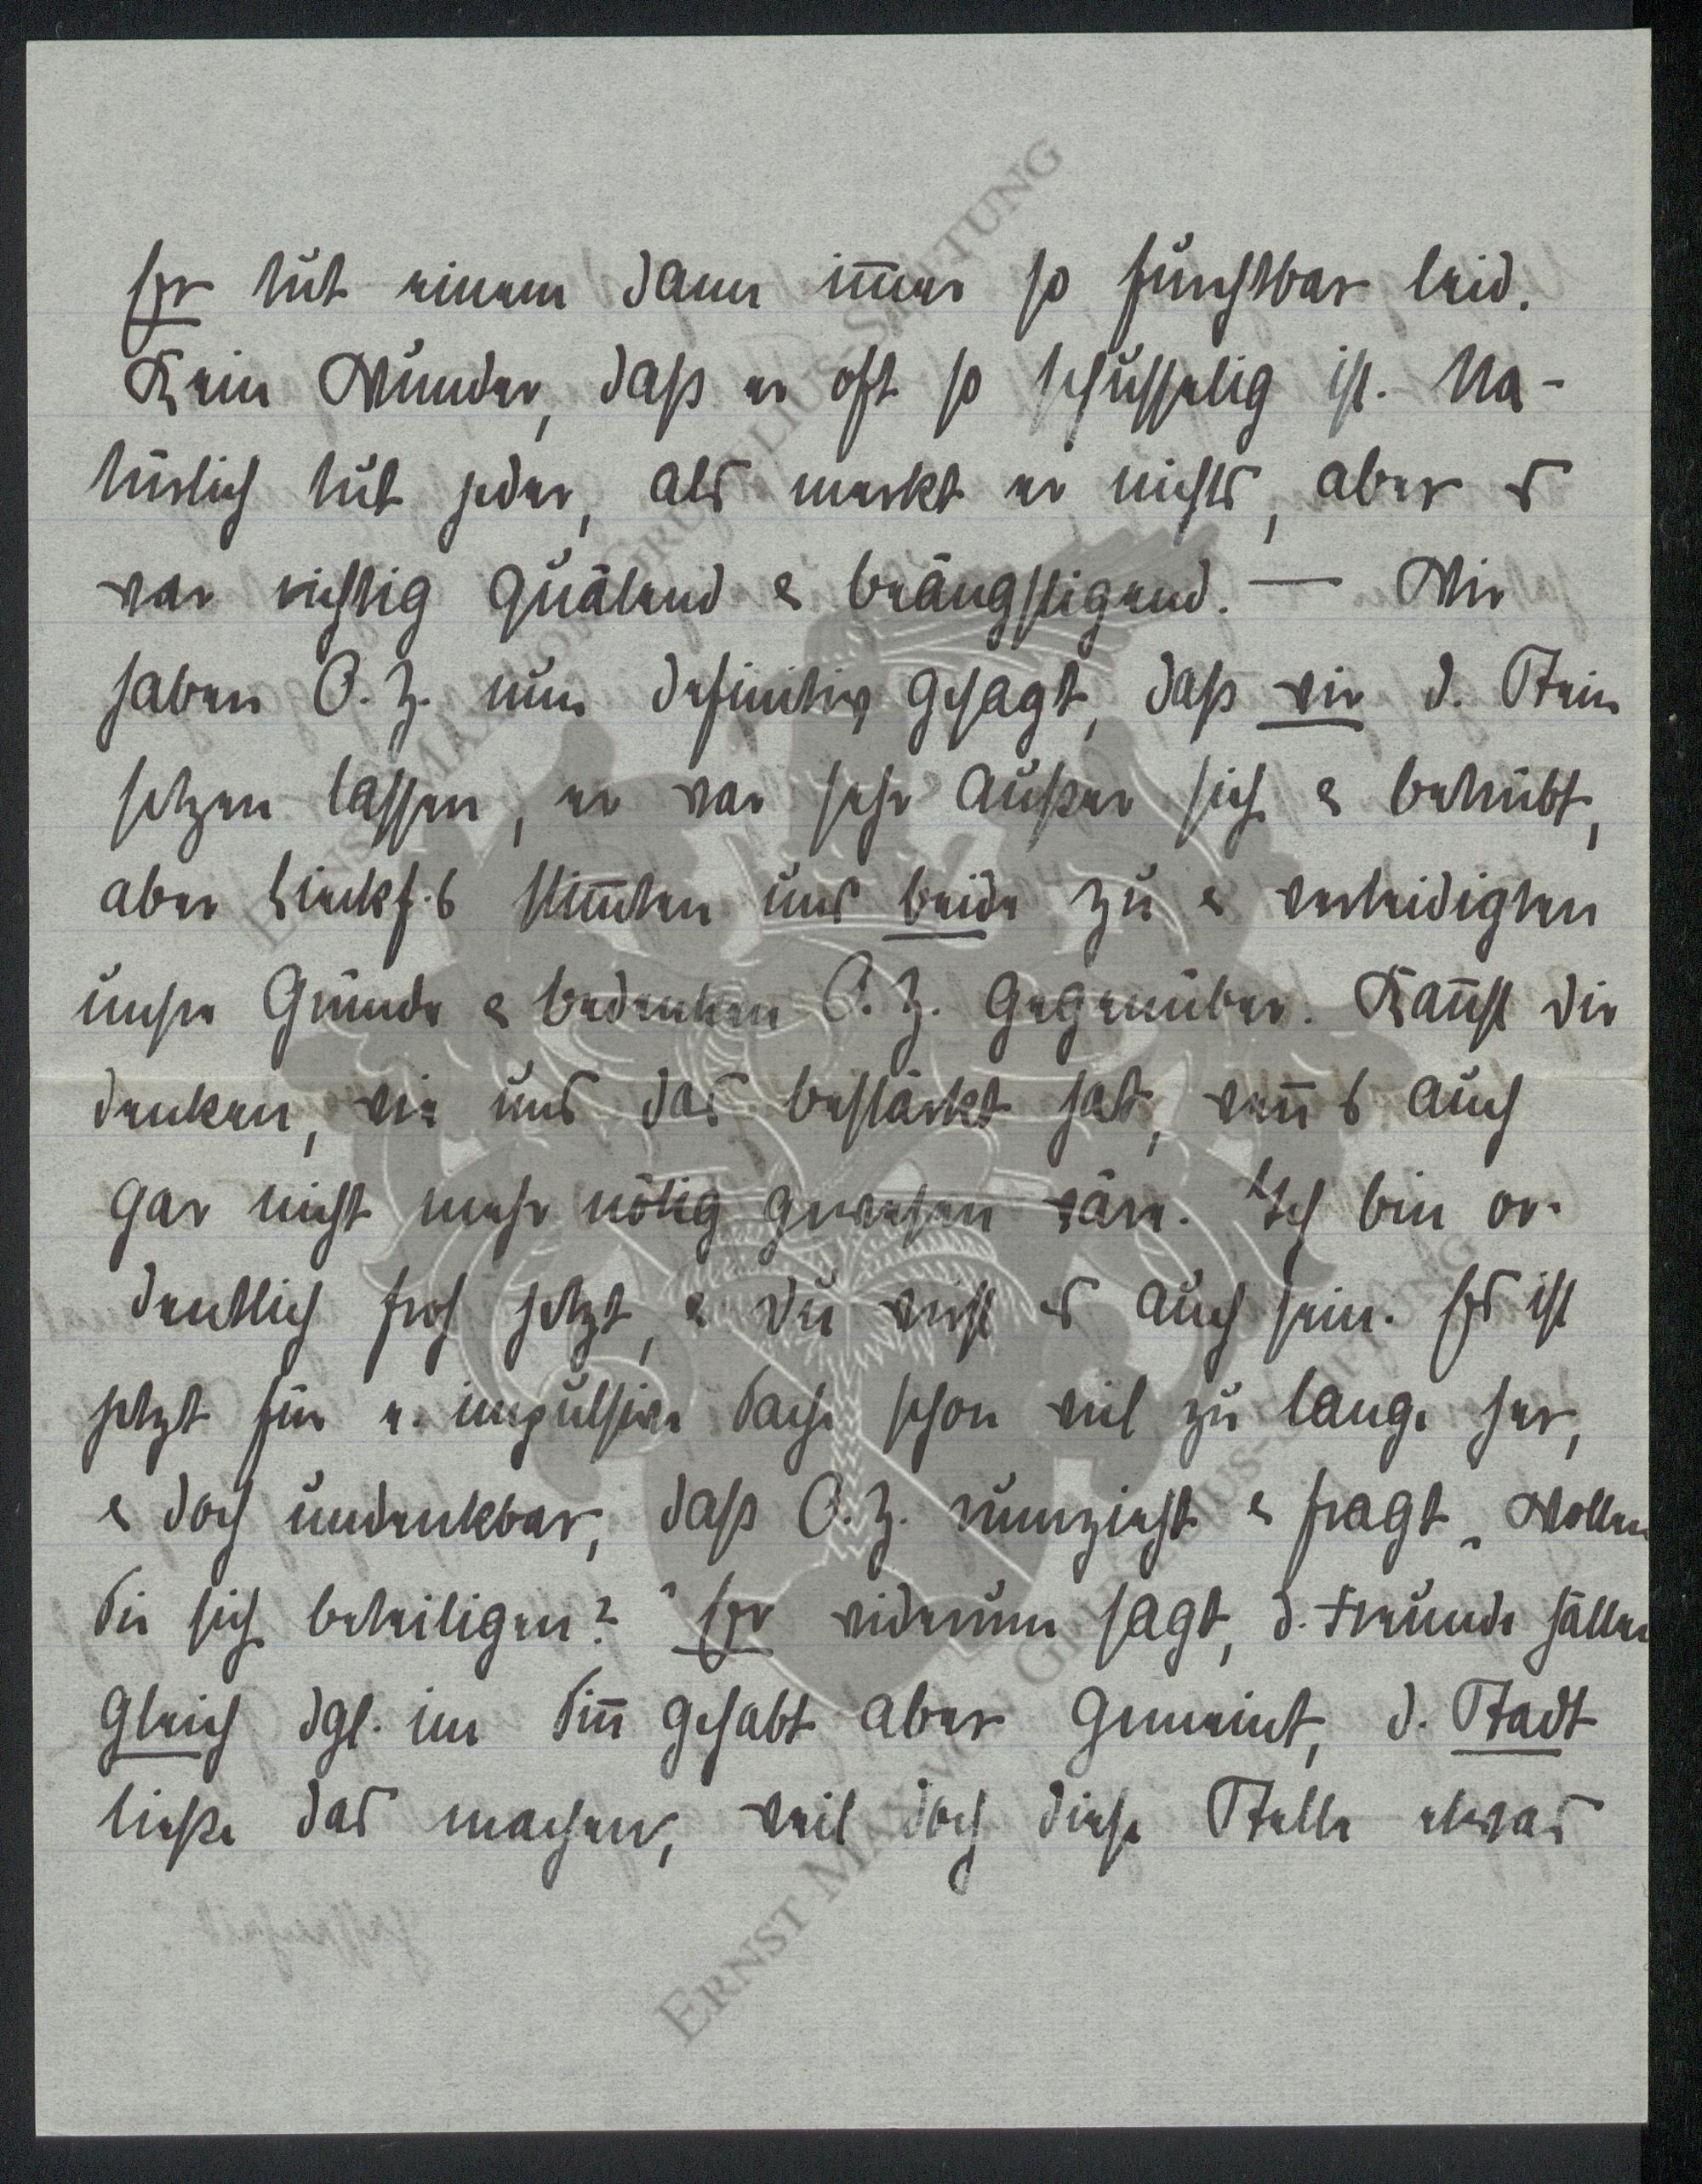 Er tut einem dann im̅er so furchtbar leid.
Kein Wunder, daß er oft so schusselig ist. Na-
türlich tut jeder, als merkt er nichts, aber es
war richtig quälend & beängstigend. — Wir
haben O. Z. nun definitiv gesagt, daß wir d. Stein
setzen lassen, er war sehr außer sich & betrübt,
aber stim̅ten uns beide zu & verteidigten
unsre Gründe & bedenken O. Z. gegenüber. Kan̅st dir
denken, wie uns das bestärkt hat, wen̅ s auch
gar nicht mehr nötig gewesen wäre. Ich bin or-
dentlich froh jetzt, & du wirst es auch sein. Es ist
jetzt für e. impulsive Sache schon viel zu lange her,
& doch undenkbar, daß O. Z. rumzieht & fragt „Wollen
Sie sich beteiligen?“ Er widerum sagt, d. Freunde hätten
gleich dgl. im Sin̅ gehabt aber gemeint, d. Stadt
ließe das machen, weil doch diese Stelle etwas
ERNST MAX VON GRUNELIUS-STIFTUNG
ERNST MAX VON GRUNELIUS-STIFTUNG